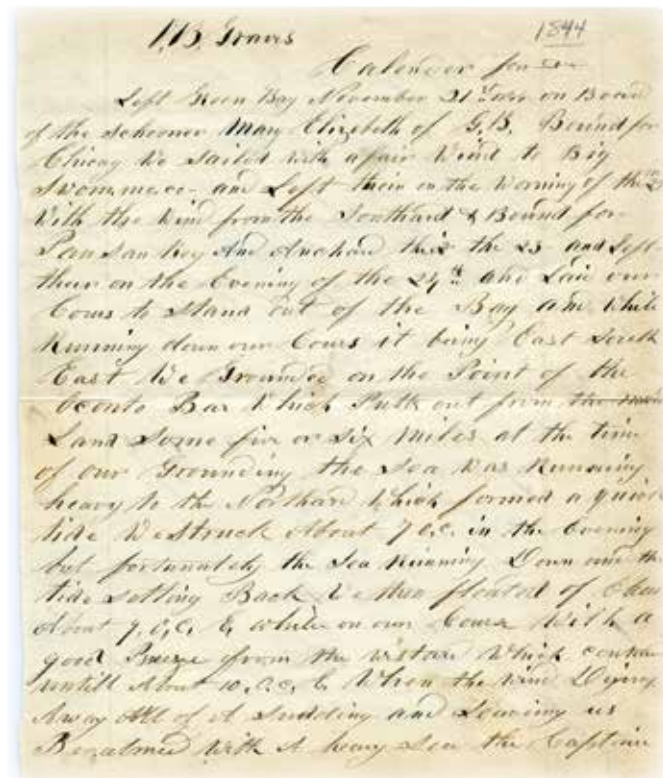 P.B. Graves 1844
Calender for
Left Green Bay November 21st on Board
of the Schooner Mary Elizebeth of G.B. Bound for
Chicag We Sailed With a fair Wind to Big
and Left their on the Morning of the
With the Wind from the Southard & Bound for
And Anchard the 23 and Left
their on the Evening of the 24th and Laid our
Cours to Stand out of the Bay and While
Running down our Cours it being East South
East We Grounded on the Point of the
Oconto Bar Which Putts out from the main
Land Some five or Six Miles at the time
of our Grounding the Sea Was Running
heavy to the Northard Which formed a quick
tide We Struck About 7 O.C. in the Evening
but fortunately the Sea Running Down and the
tide Setting Back We then floated of
About 9 O.C. & while on our Cours With a
good Breeze from the Westard Which
untill About 10 O.C. When the Wind Dying
Away All of A Sudding and Leaving us
Becalmed With A heavy Sea the Captain